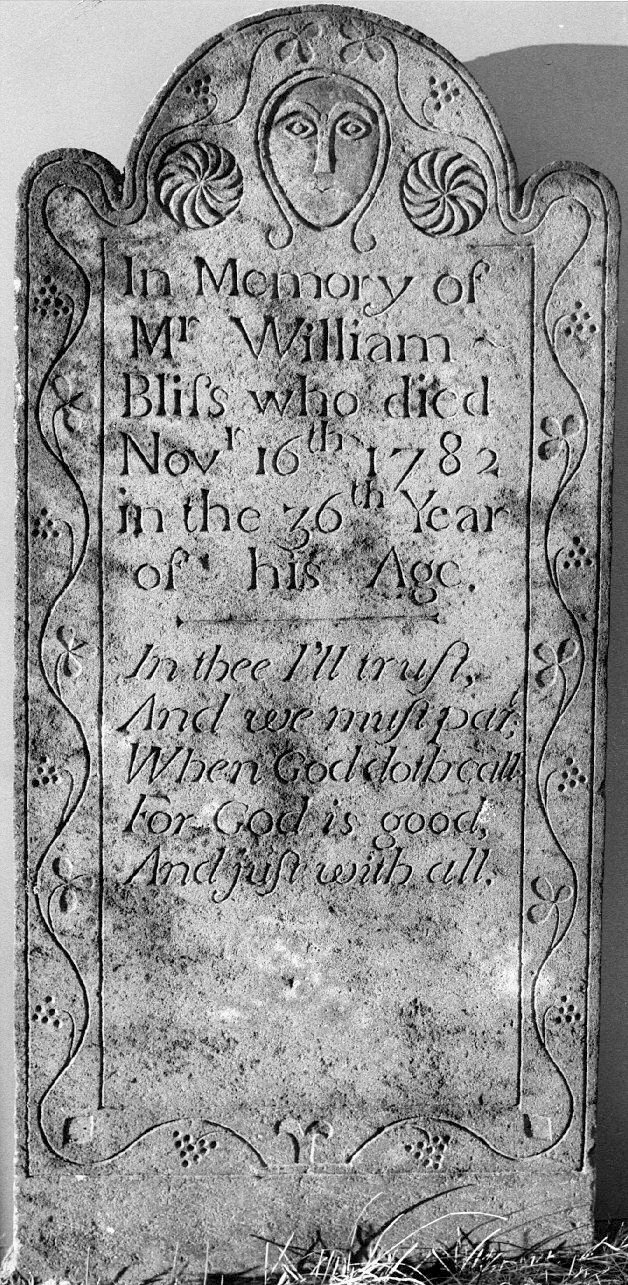 In Memory of
Mr William
Bliſs who died
Novr 16th 1782
in the 36th Year
of his Age.
In thee I'll truſt,
And we muſt par,
When God doth call
For God is good,
And juſt with all.